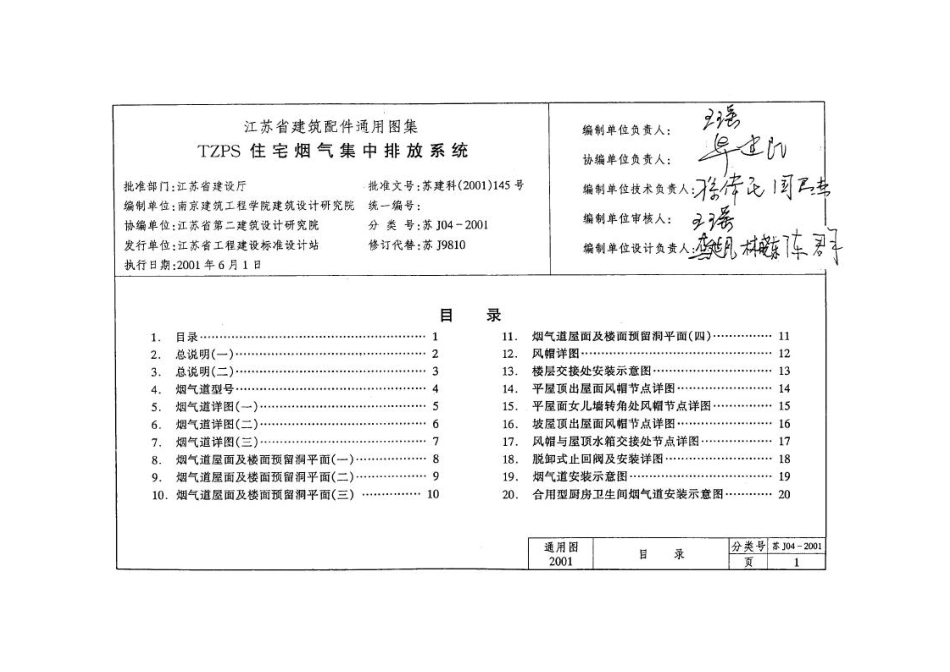 江苏省建筑配件通用图集
TZPS 住宅烟气集中排放系统
批准部门:江苏省建设厅 批准文号:苏建科(2001)145号
编制单位:南京建筑工程学院建筑设计研究院 统一编号:
协编单位:江苏省第二建筑设计研究院 分 类 号:苏 J04－2001
发行单位:江苏省工程建设标准设计站 修订代替:苏 J9810
执行日期:2001年6月1日
编制单位负责人:
协编单位负责人:
编制单位技术负责人:
编制单位审核人:
编制单位设计负责人:
目 录
1. 目录 1
2. 总说明(一) 2
3. 总说明(二) 3
4. 烟气道型号 4
5. 烟气道详图(一) 5
6. 烟气道详图(二) 6
7. 烟气道详图(三) 7
8. 烟气道屋面及楼面预留洞平面(一) 8
9. 烟气道屋面及楼面预留洞平面(二) 9
10. 烟气道屋面及楼面预留洞平面(三) 10
11. 烟气道屋面及楼面预留洞平面(四) 11
12. 风帽详图 12
13. 楼层交接处安装示意图 13
14. 平屋顶出屋面风帽节点详图 14
15. 平屋面女儿墙转角处风帽节点详图 15
16. 坡屋顶出屋面风帽节点详图 16
17. 风帽与屋顶水箱交接处节点详图 17
18. 脱卸式止回阀及安装详图 18
19. 烟气道安装示意图 19
20. 合用型厨房卫生间烟气道安装示意图 20
通用图
2001
目 录
分类号 苏 J04－2001
页 1